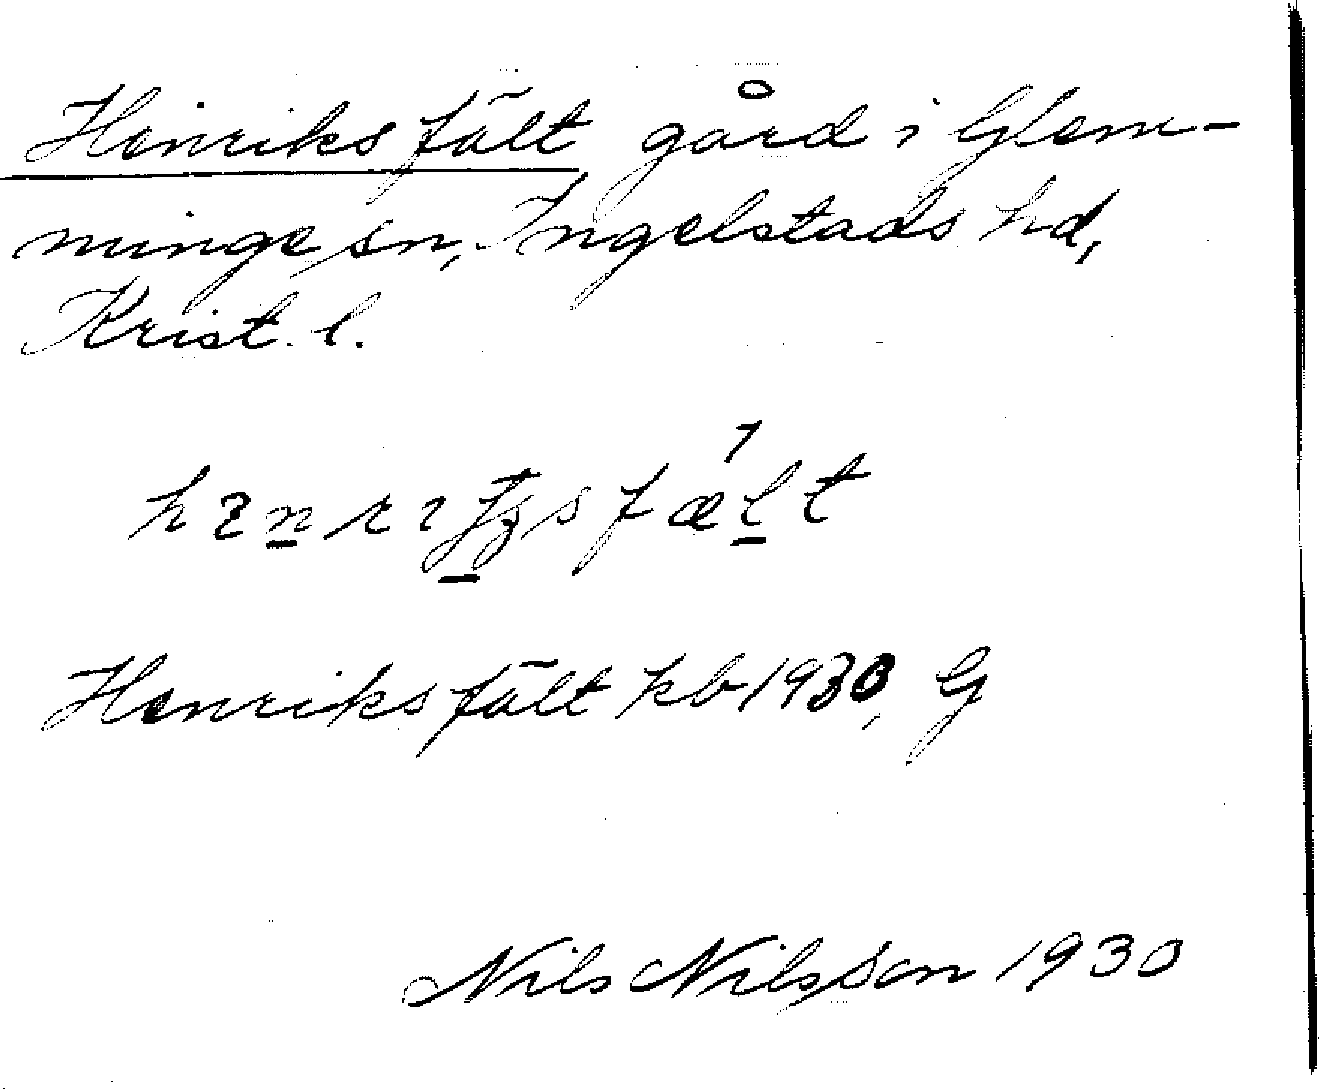 Henriksfält gård i Glem-
minge sn, Ingelstads hd,
Krist. l.
Henriksfält kb 1930, G
Nils Nilsson 1930